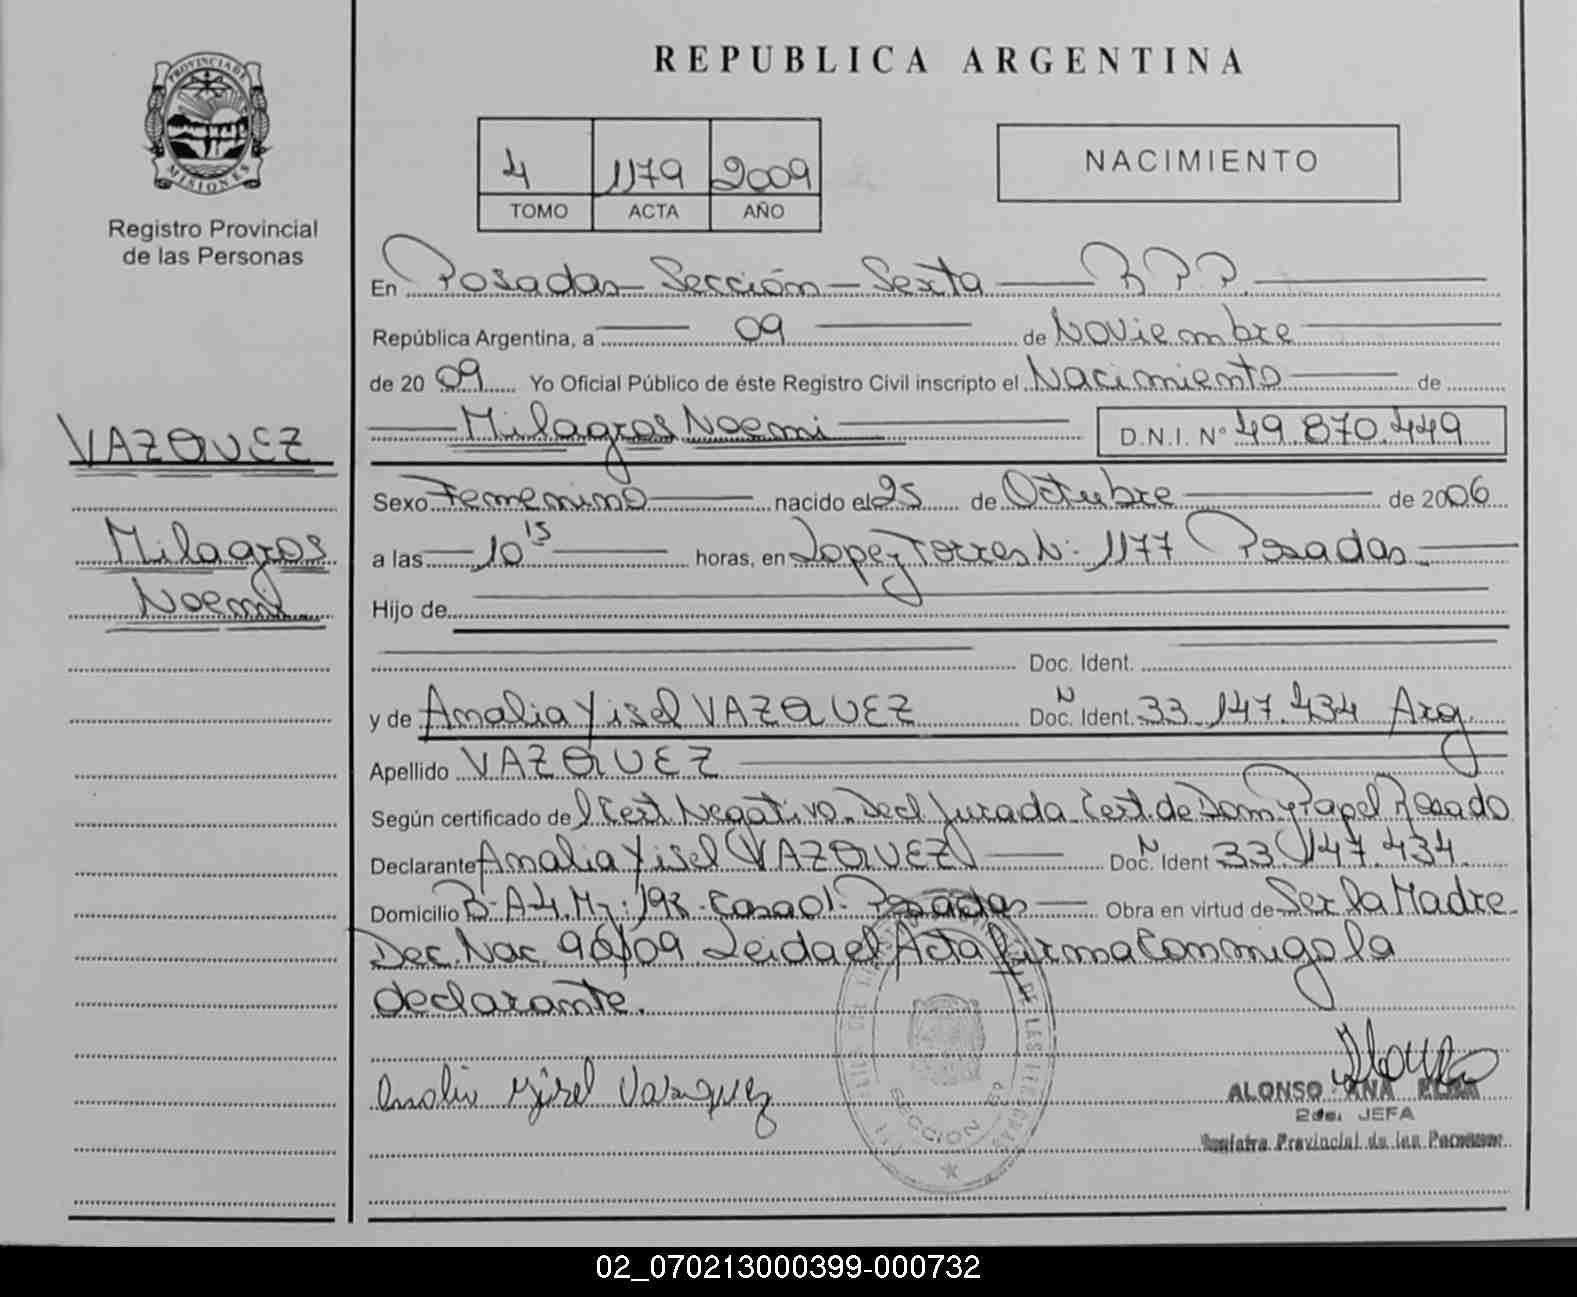 REPUBLICA ARGENTINA
PROVINCIA DE
MISIONES
Registro Provincial
de las Personas
4 1179 2009
TOMO ACTA AÑO
NACIMIENTO
En Posadas - Sección - Sexta - R.P.P.
República Argentina, a 09 de Noviembre
de 2009 Yo Oficial Público de éste Registro Civil inscripto el Nacimiento de
Milagros Noemi D.N.I. N° 49.870.449
VAZQUEZ
Milagros
Noemi
Sexo Femenino nacido el 25 de Octubre de 2006
a las 10 15 horas, en Lopez Torres N° 1177 Posadas
Hijo de
Doc. Ident.
y de Amalia Yisel VAZQUEZ Doc. N Ident. 33.147.434 Arg.
Apellido VAZQUEZ
Según certificado de Cert Negativo - Decl Jurada - Cert. de Dom y Papel Rosado
Declarante Amalia Yisel (VAZQUEZ) Doc. N Ident 33.147.434.
Domicilio B- A4. Mz: 193. Casa 01. Posadas Obra en virtud de Ser la Madre
Dec. Nac. 90/09 Leida el Acta firma Conmigo la
declarante.
Amalia Yisel Vazquez
SECCION 6ª
ALONSO ANA
2da. JEFA
Registro Provincial de las Personas
02_070213000399-000732